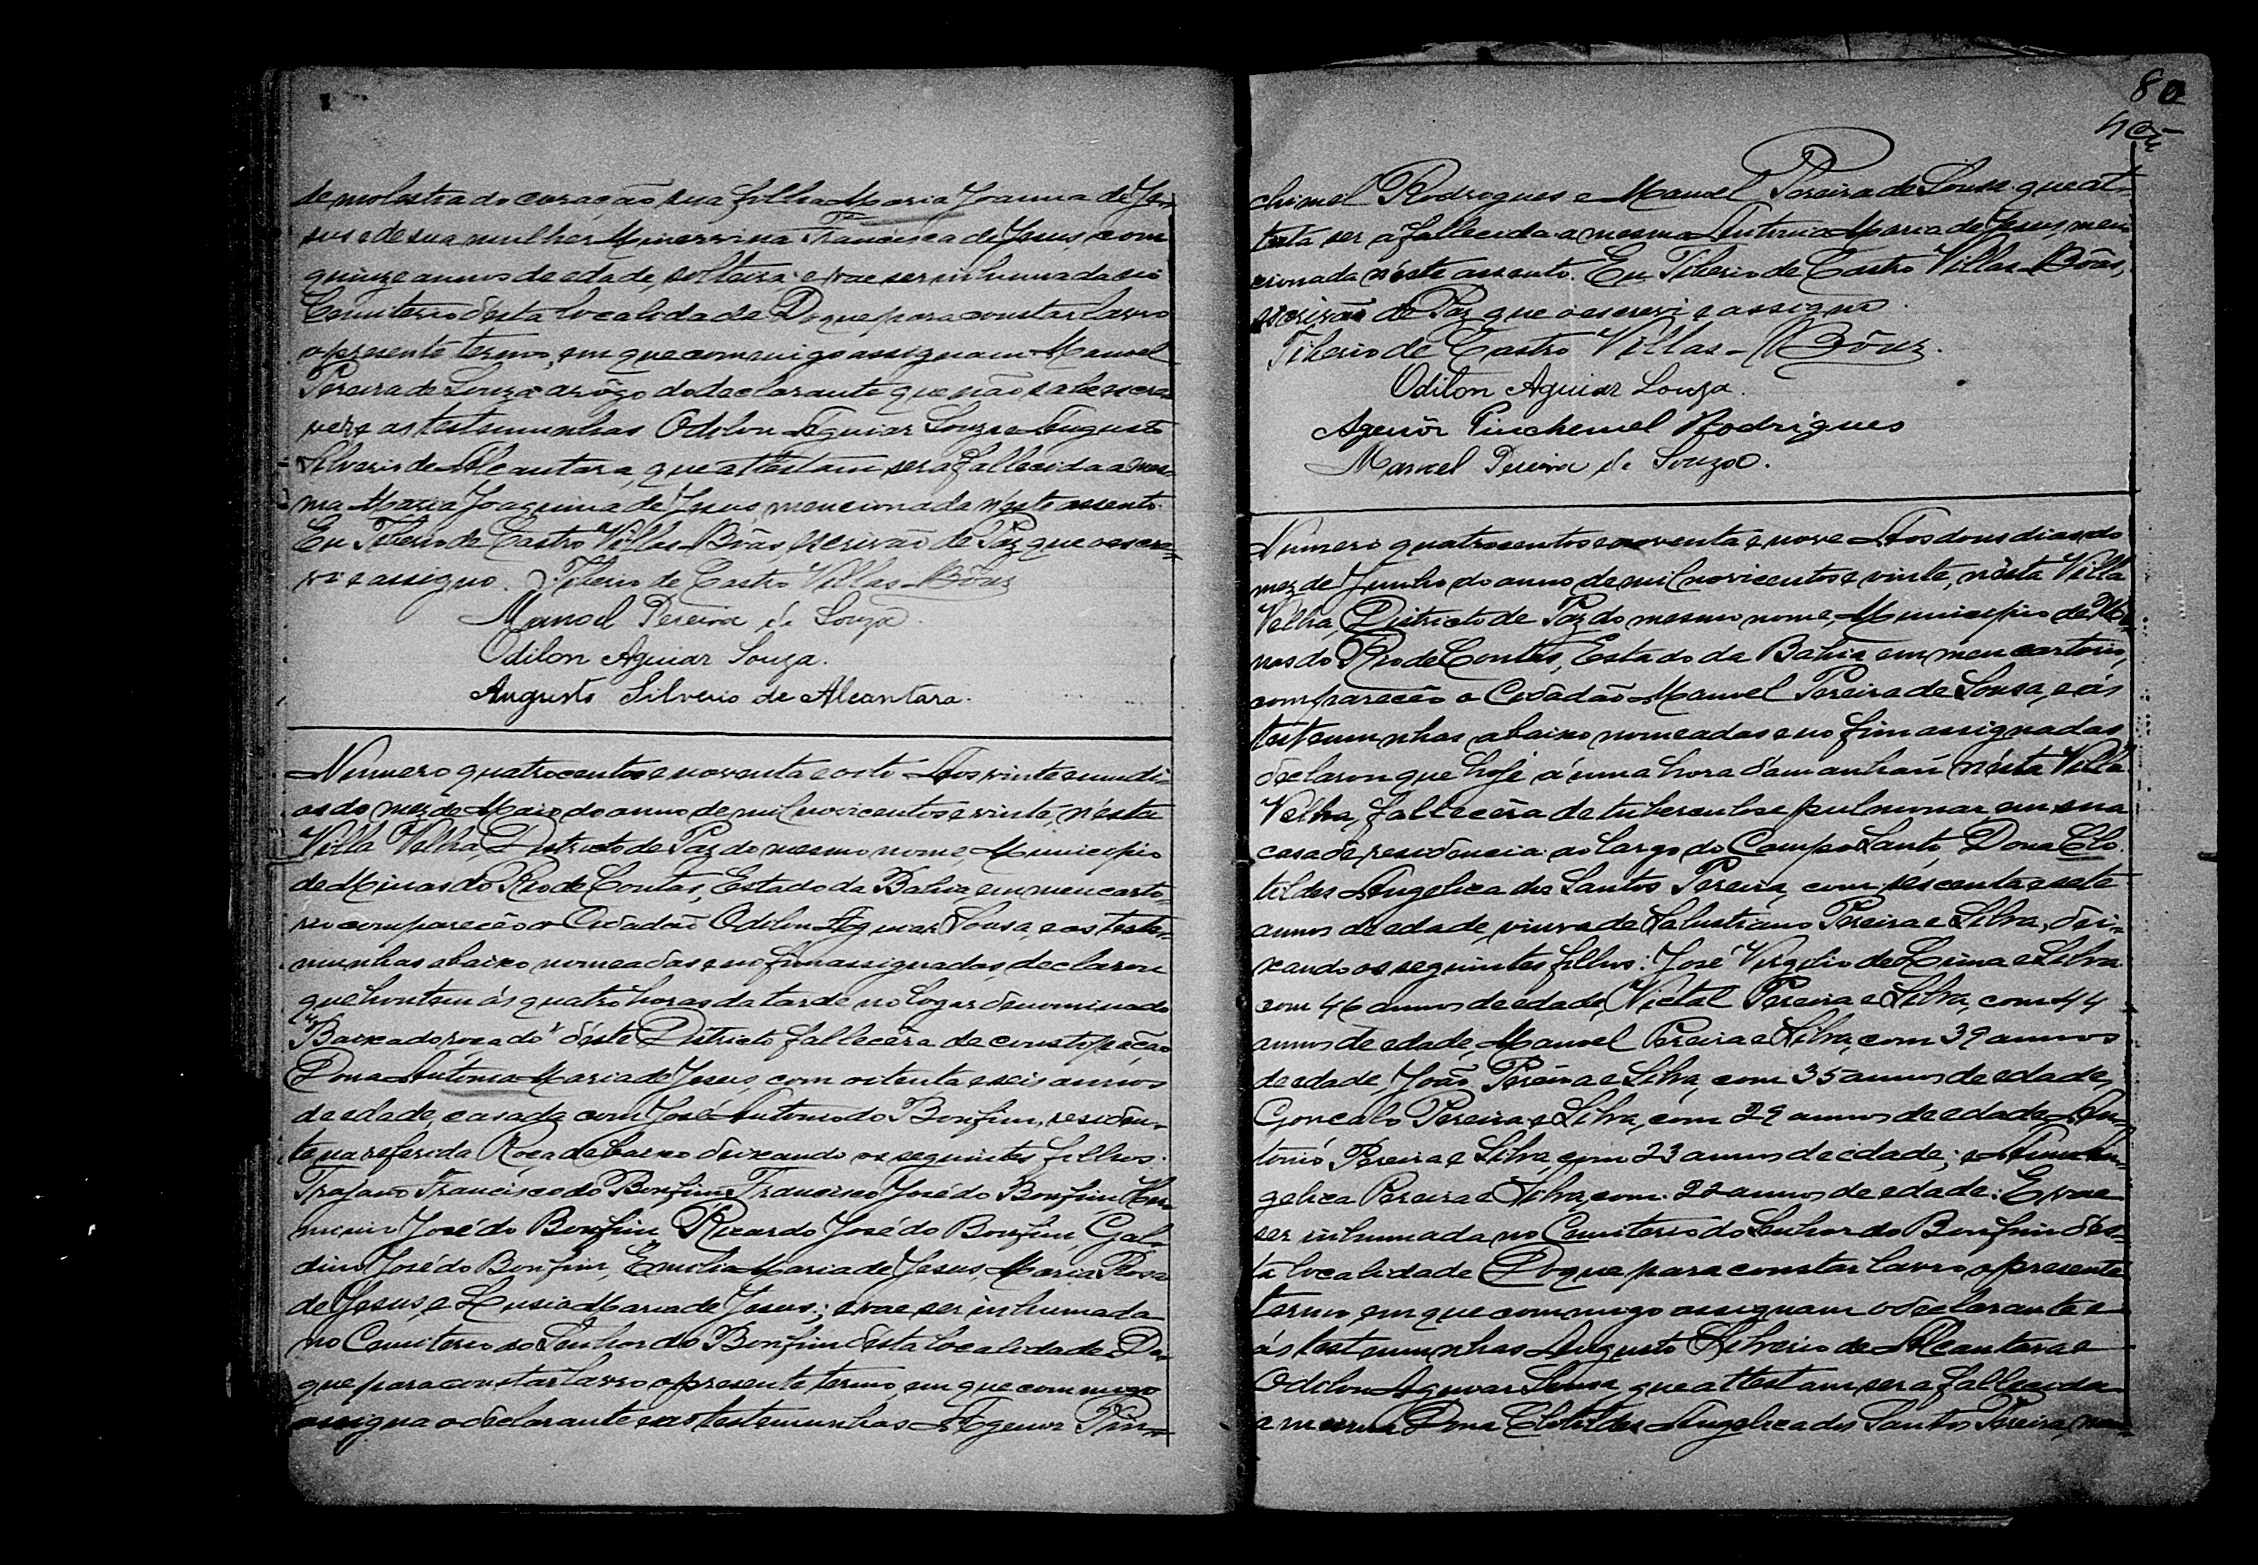 de molestia do coração sua filha Maria Joanna de Je-
sus e de sua mulher Minervina Francisca de Jesus, com
quinze annos de edade, solteira; e vae ser inhumada no
Cemiterio d'esta localidade. Do que para constar lavro
o presente termo, em que commigo assignam Manoel
Pereira de Souza a rôgo do declarante que não sabe escre-
ver e as testemunhas Odilon Aguiar Souza e Augusto
Silverio de Alcantara, que attestam ser a fallecida a mes-
ma Maria Joaquina de Jesus, mencionada n'este assento.
Eu Tiberio de Castro Villas-Bôas, escrivão de Paz que o escre-
vi e assigno. Tiberio de Castro Villas-Bôas
Manoel Pereira de Souza.
Odilon Aguiar Souza.
Augusto Silverio de Alcantara.
Numero quatrocentos e noventa e oito. Aos vinte e um di-
as do mez de Maio do anno de mil novicentos e vinte, n'esta
Villa Velha, Districto de Paz do mesmo nome, Municipio
de Minas do Rio de Contas, Estado da Bahia, em meu carto-
rio compareceo o Cidadão Odilon Aguiar Sousa, e as teste-
munhas abaixo nomeadas e no fim assignadas, declarou
que hontem ás quatro horas da tarde no logar denominado
d'este Districto fallecêra de constipação
Dona Antonia Maria de Jesus, com oitenta e seis annos
de edade, casada com José Antonio do Bonfim, residen-
te na referida Roça de baixo deixando os seguintes filhos:
Trajano Francisco do Bonfim, Francisco José do Bonfim, Her-
minio José do Bonfim, Ricardo José do Bonfim, Gal-
dino José do Bonfim, Emilia Maria de Jesus, Maria Rosa
de Jesus, e Lusia Maria de Jesus; e vae ser inhumada
no Cemiterio do Senhor do Bonfim d'esta localidade. Do
que para constar lavro o presente termo, em que commigo
assigna o declarante e as testemunhas Agenor Pin-
80
chimel Rodrigues e Manoel Pereira de Sousa que at-
testa ser a fallecida a mesma Antonia Maria de Jesus, men-
cionada n'este assento. Eu Tiberio de Castro Villas-Bôas,
escrivão de Paz que o escrevi e assigno.
Tiberio de Castro Villas-Bôas.
Odilon Aguiar Souza.
Agenôr Pinchemel Rodrigues
Manoel Pereira de Souza.
Numero quatrosentos e noventa e nove. Aos dous dias do
mez de Junho do anno de mil novicentos e vinte, n'esta Villa
Velha, Districto de Paz do mesmo nome, Municipio de Mi-
nas do Rio de Contas, Estado da Bahia em meu cartorio,
compareceo o Cidadão Manoel Pereira de Sousa, e ás
testemunhas abaixo nomeadas e no fim assignadas
declarou que hoje á uma hora da manhan n'esta Villa
Velha, fallecêra de tuberculose pulmonar em sua
casa de residencia ao largo do Campo Santo, Dona Clo-
tildes Angelica dos Santos Pereira, com sescenta e sete
annos de edade, viuva de Salustiano Pereira e Silva, dei-
xando os seguintes filhos: José Virgilio de Lima e Silva
com 46 annos de edade, Victal Pereira e Silva, com 44
annos de edade, Manoel Pereira e Silva, com 39 annos
de edade, João Pereira e Silva, com 35 annos de edade,
Goncalo Pereira e Silva, com 29 annos de edade, An-
tonio Pereira e Silva, com 23 annos de edade; e An-
gelica Pereira e Silva, com 22 annos de edade: E vae
ser inhumada no Cemiterio do Senhor do Bonfim d'es-
ta localidade. Do que para constar lavro o presente
termo, em que commigo assignam o declarante e
ás testemunhas Augusto Silverio de Alcantara e
Odilon Aguiar Sousa, que attestam ser a fallecida
a mesma Dona Clotildes Angelica dos Santos Pereira, men-